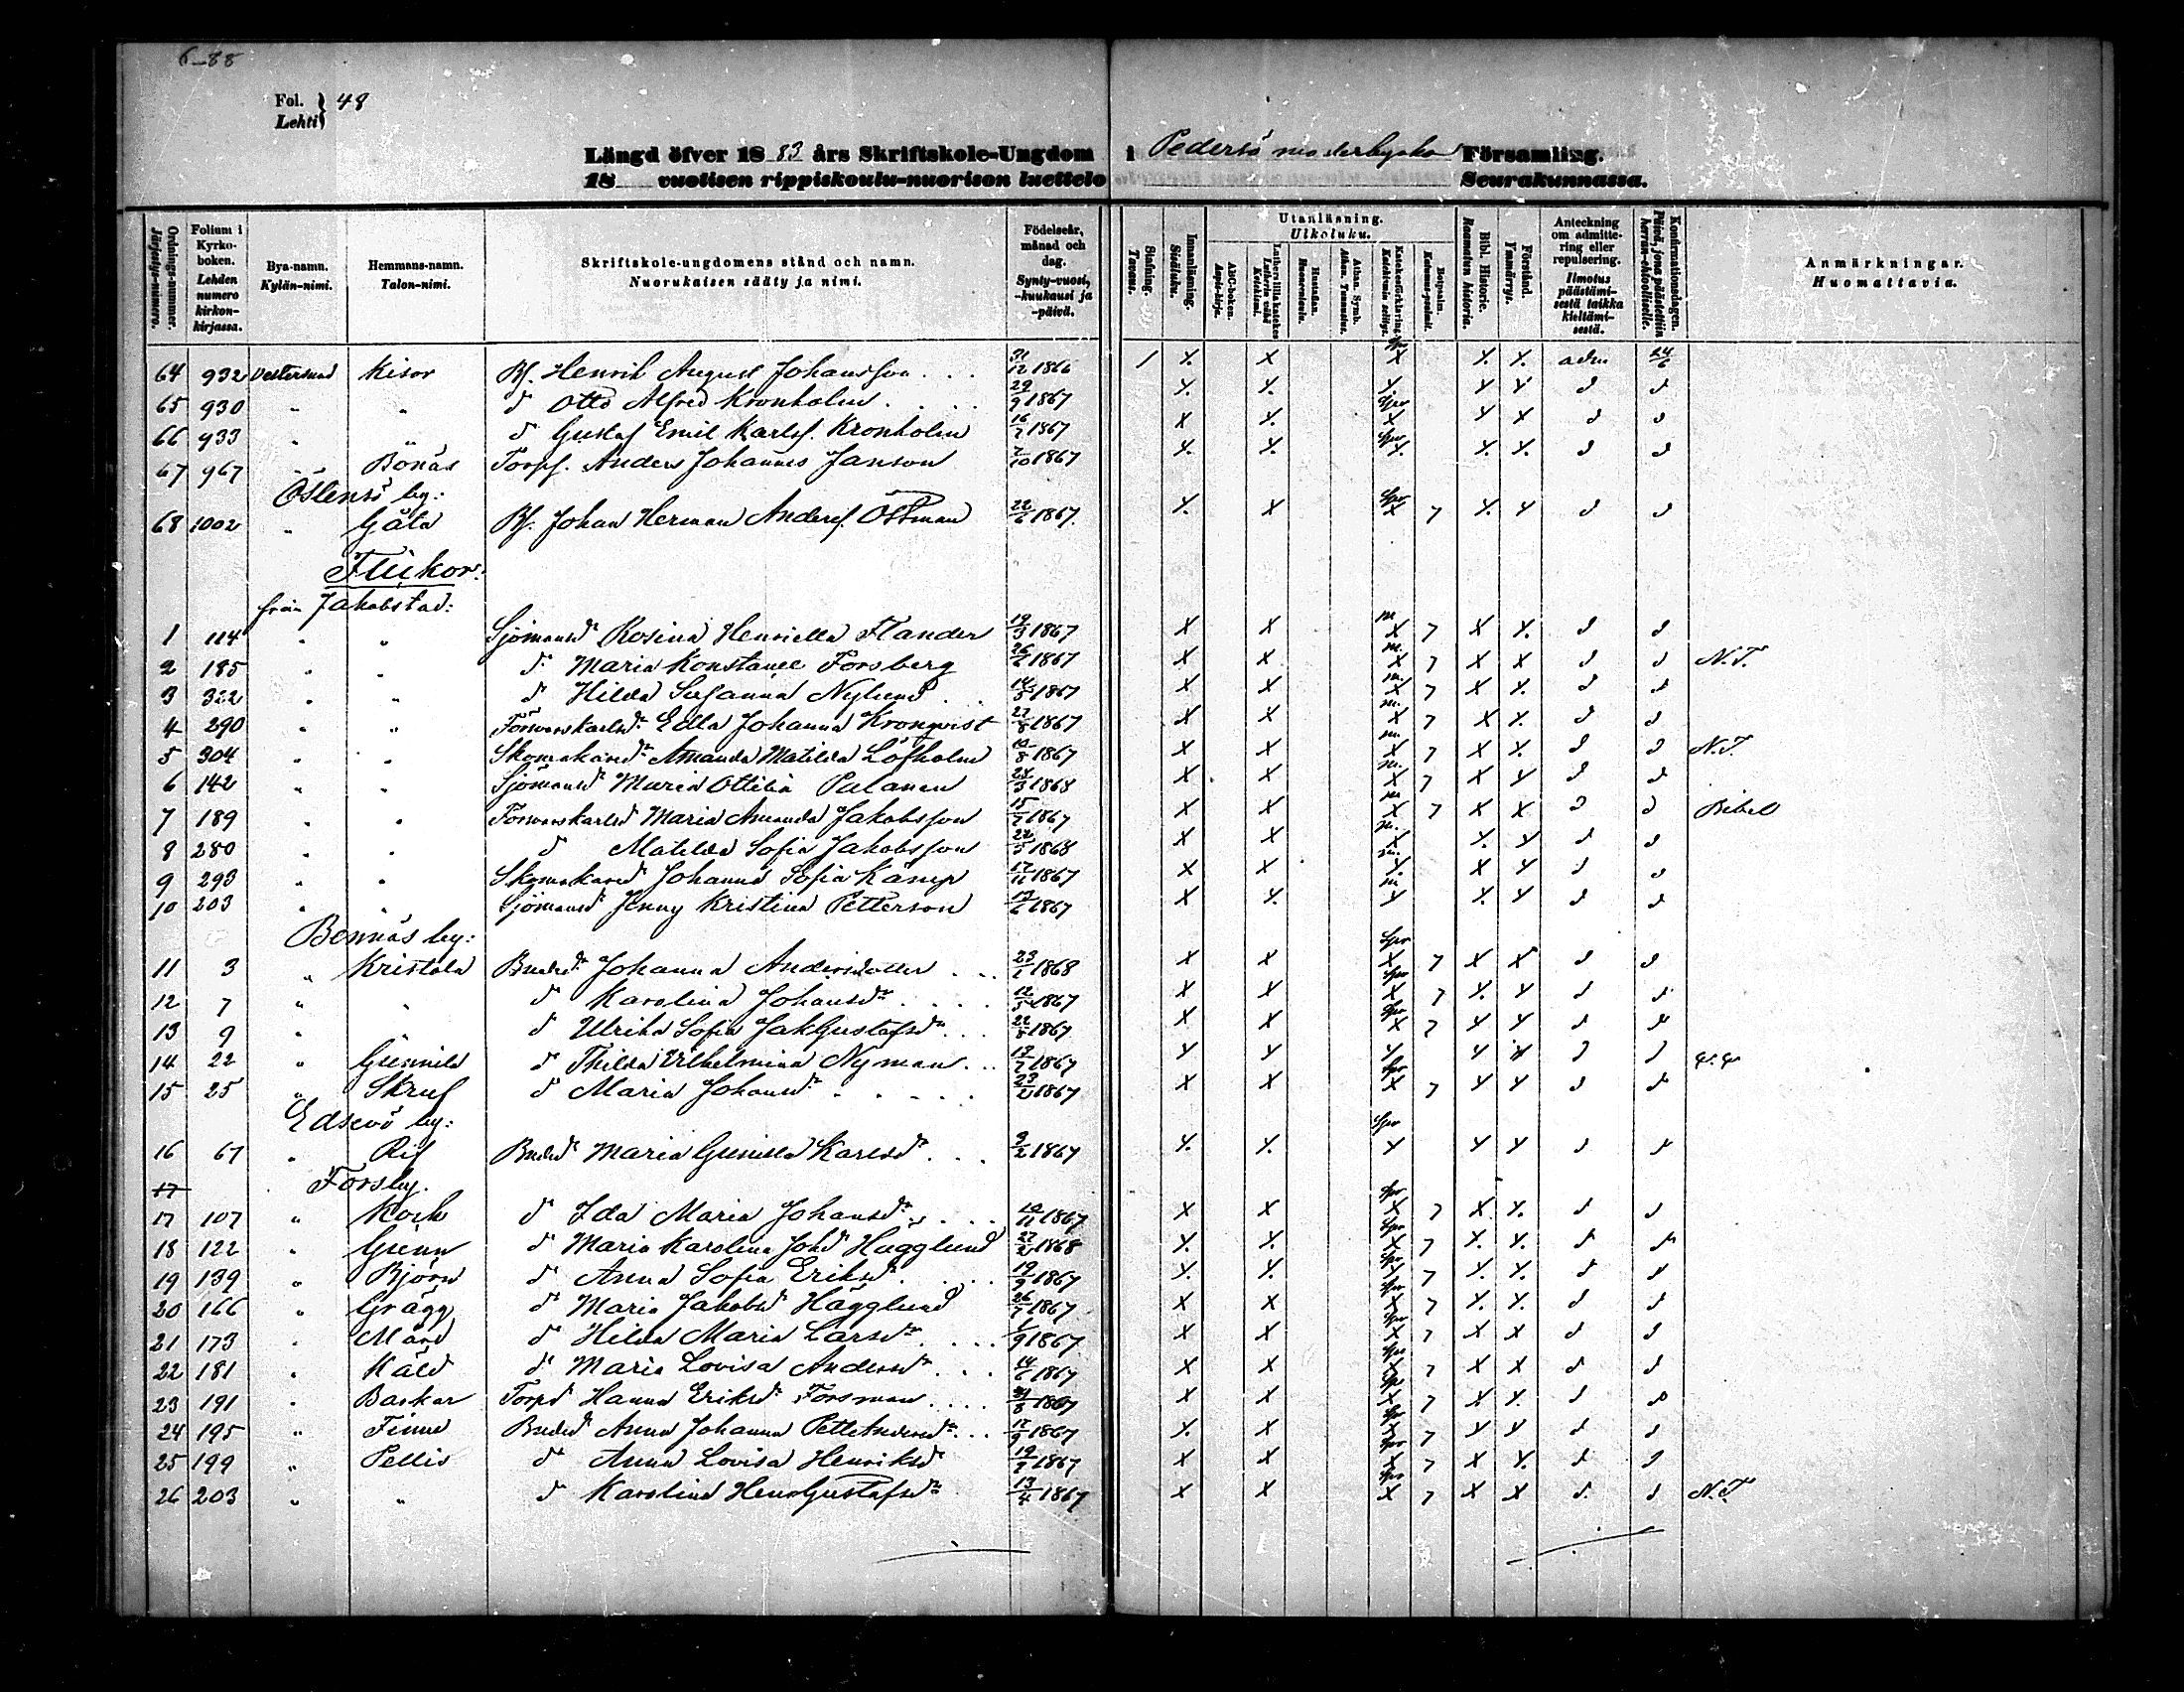 6-88
Fol. } 48
Lehti
Längd öfver 1883 års Skriftskole-Ungdom i Pedersö moderkyrko Församling.
18 vuotisen rippiskoulu-nuorison luettelo Seurakunnassa.
Ordnings-nummer. Järjestys-numero. Folium i Kyrko-boken. Lehden numero kirkon-kirjassa. Bya-namn. Kylän-nimi. Hemmans-namn. Talon-nimi. Skriftskole-ungdomens stånd och namn. Nuorukaisen sääty ja nimi. Födelseår, månad och dag. Synty-vuosi, -kuukausi ja -päivä. Stafning. Tavaus. Innanläsning. Sisäluku. Utanläsning. Ulkoluku. ABC-boken. Aapis-kirja. Luthers lilla katekes Lutherin vähä Katekismi. Hustaflan. Huoneentaulu. Athan. Symb. Athan. Tunnustus. Katekesförklaring Katekismin selitys. Botpsalm. Katumus-psalmit. Bibl. Historie. Raamatun historia. Förstånd. Ymmärrys. Anteckning om admitte-ring eller repulsering. Ilmotus päästämi-sestä taikka kieltämi-sestä. Konfirmationsdagen. Päivä, jona päästettiin herran-ehtoolliselle. Anmärkningar. Huomattavia.
64 932 Vestersund Kisor Bf. Henrik August Johansson . . . 31/12 1866 / X. X Spr X X. X. adm 24/6
65 930 " " d:o Otto Alfred Kronholm . . . . 29/9 1867 X. X. X. X X d d
66 933 " " d:o Gustaf Emil Karlsf. Kronholm 16/7 1867 X X. Spr X X X d d
67 967 " Bonäs Torpf. Anders Johannes Janson 7/10 1867 X. X. Spr X. X. X. d d
Östensö by:
68 1002 " Gäta Bf. Johan Herman Andersf. Östman 22/6 1867. X. X Spr X 7 X. X d d
Flickor:
från Jakobstad:
1 114 " " Sjömansd:r Rosina Henriella Flander 19/3 1867 X X m X 7 X X. d d
2 185 " " d:o Maria Konstance Forsberg 26/2 1867 X X m. X 7 X X d d N.T.
3 322 " " d:o Hilda Susanna Nylund . . 14/5 1867 X X m. X 7 X X. d d
4 290 " " Försvarskarlsd:r Edla Johanna Kronqvist 27/8 1867 X X m. X 7 X X. d d
5 304 " " Skomakared:r Amanda Matilda Löfholm 10/8 1867 X X m. X 7 X X. d d N.T.
6 142 " " Sjömansd:r Maria Ottilia Palanen 24/3 1868 X X m. X 7 X X d d
7 189 " " Försvarskarlsd:r Maria Amanda Jakobsson 15/7 1867 X X m X 7 X X d d Bibel
8 280 " " d:o Matilda Sofia Jakobsson 22/5 1868 X X m. X X. X d d
9 293 " " Skomakared:r Johanna Sofia Kämp 17/11 1867 X X m. X. X X d d
10 203 " " Sjömansd:r Jenny Kristina Petterson 17/6 1867 X X. m X X. X d d
Bennäs by:
11 3 " Kristola Bondd:r Johanna Andersdotter . . . 23/1 1868 X X Spr X 7 X X d d
12 7 " " d:o Karolina Johansd:r . . . . 12/5 1867 X X Spr X 7 X. X d d
13 9 " " d:o Ulrika Sofia JakGustafsd:r . . 22/8 1867 X X Spr X 7 X X d d
14 22 " Gunnila d:o Thilda Vilhelmina Nyman . . . 13/7 1867 X X X X X d d
15 25 " Skruf d:o Maria Johansd:r . . . . . 23/2 1867 X X Spr X 7 X X d d
Edsevö by:
16 67 " Rif Bondd:r Maria Gunilla Karlsd:r . . . 9/2 1867 X. X. Spr X X X d d
17 Forsby.
17 107 " Kock d:o Ida Maria Johansd:r . . . . 10/11 1867 X X Spr X 7 X. X. d d
18 122 " Grenn d:o Maria Karolina Johd:r Hägglund 27/2 1868 X. X. Spr X 7 X. X. d d
19 139 " Björn d:o Anna Sofia Eriksd:r . . . . 19/9 1867 X. X. Spr X 7 X. X. d d
20 166 " Grägg d:o Maria Jakobsd:r Hägglund 26/7 1867 X X Spr X 7 X. X. d d
21 173 " Mård d:o Hilda Maria Larsd:r . . . . 1/9 1867 X X Spr X 7 X X d d
22 181 " Käld d:o Maria Lovisa Andersd:r . . . 14/6 1867 X X Spr X 7 X X d d
23 191 " Backar Torpd:r Hanna Eriksd:r Forsman . . . . 31/8 1867 X X Spr X 7 X X. d d
24 195 " Finne Bondd:r Anna Johanna PettAndersd:r . . . 17/9 1867 X. X Spr X 7 X X d d
25 199 " Pellis d:o Anna Lovisa Henriksd:r 19/7 1867 X X Spr X 7 X X. d d
26 203 " " d:o Karolina HenrGustafsd:r 13/4 1867 X X Spr X 7 X X d. d N.T.